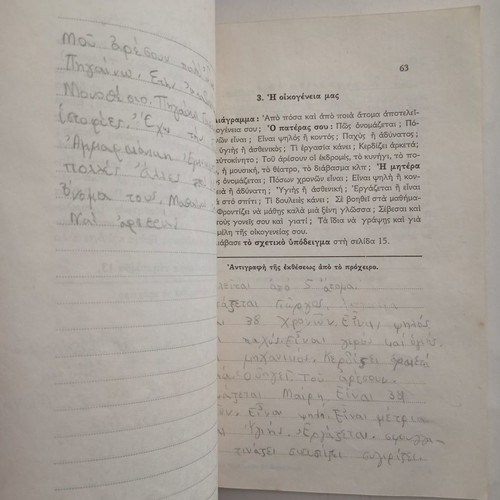 Μοῦ ἀρέσουν πολὺ
Πηγαίνω. Στὸν
Μουσεῖο. Πηγαίνω
ἱστορίες. Ἔχω τὴν
πολλὲς ἄλλες
ὄνομα τους. Μαθαίνω
Ναὶ ἀρέσει
63
3. Ἡ οἰκογένεια μας
ιάγραμμα: Ἀπὸ πόσα καὶ ἀπὸ ποιὰ ἄτομα ἀποτελεῖ-
ογένεια σου; Ὁ πατέρας σου: Πῶς ὀνομάζεται; Πό-
εἶναι; Εἶναι ψηλὸς ἤ κοντός; Παχὺς ἤ ἀδύνατος;
ἤ ἀσθενικός; Τὶ ἐργασία κάνει; Κερδίζει ἀρκετά;
αὐτοκίνητο; Τοῦ ἀρέσουν οἱ ἐκδρομές, τὸ κυνήγι, τὸ πο-
, ἡ μουσική, τὸ θέατρο, τὸ διάβασμα κλπ; Ἡ μητέρα
ς ὀνομάζεται; Πόσων χρονῶν εἶναι; Εἶναι ψηλὴ ἤ κον-
ιὰ ἤ ἀδύνατη; Ὑγιὴς ἤ ἀσθενική; Ἐργάζεται ἤ εἶναι
στὸ σπίτι; Τὶ δουλειὲς κάνει; Σὲ βοηθεῖ στὰ μαθήμα-
Φροντίζει νὰ μάθης καλὰ μιὰ ξένη γλῶσσα; Σέβεσαι καὶ
τοὺς γονεῖς σου καὶ γιατί; Τὰ ἴδια νὰ γράψης καὶ γιὰ
μέλη τῆς οἰκογενείας σου.
ιάβασε τὸ σχετικὸ ὑπόδειγμα στὴ σελίδα 15.
Ἀντιγραφὴ τῆς ἐκθέσεως ἀπὸ τὸ πρόχειρο.
λεῖται ἀπὸ 5 ἄτομα
άζεται Γιῶργος.
38 χρονῶν. Εἶναι ψηλός
παχύς. Εἶναι γερὸς καὶ ὑγιής.
μηχανικός. Κερδίζει ἀρκετὰ
Ὁδηγεῖ. Τοῦ ἀρέσουν
άζεται Μαίρη. Εἶναι 38
ῶν. Εἶναι ψηλή. Εἶναι μέτρια
Ὑγιής. Ἐργάζεται.
τινάζει σκουπίζει σιγυρίζει